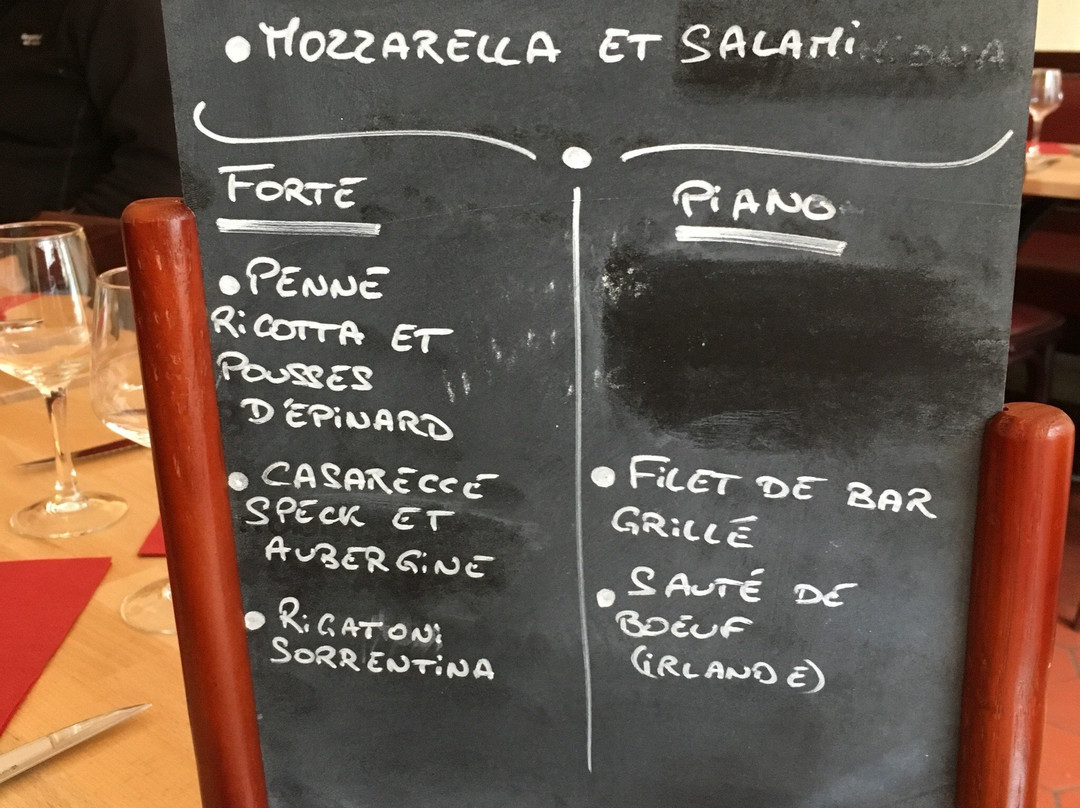 • MOZZARELLA ET SALAMI
FORTE
• PENNE
RICOTTA ET
POUSSES
D'EPINARD
• CASARECCE
SPECK ET
AUBERGINE
• RIGATONI
SORRENTINA
PIANO
• FILET DE BAR
GRILLÉ
• SAUTÉ DE
BOEUF
(IRLANDE)